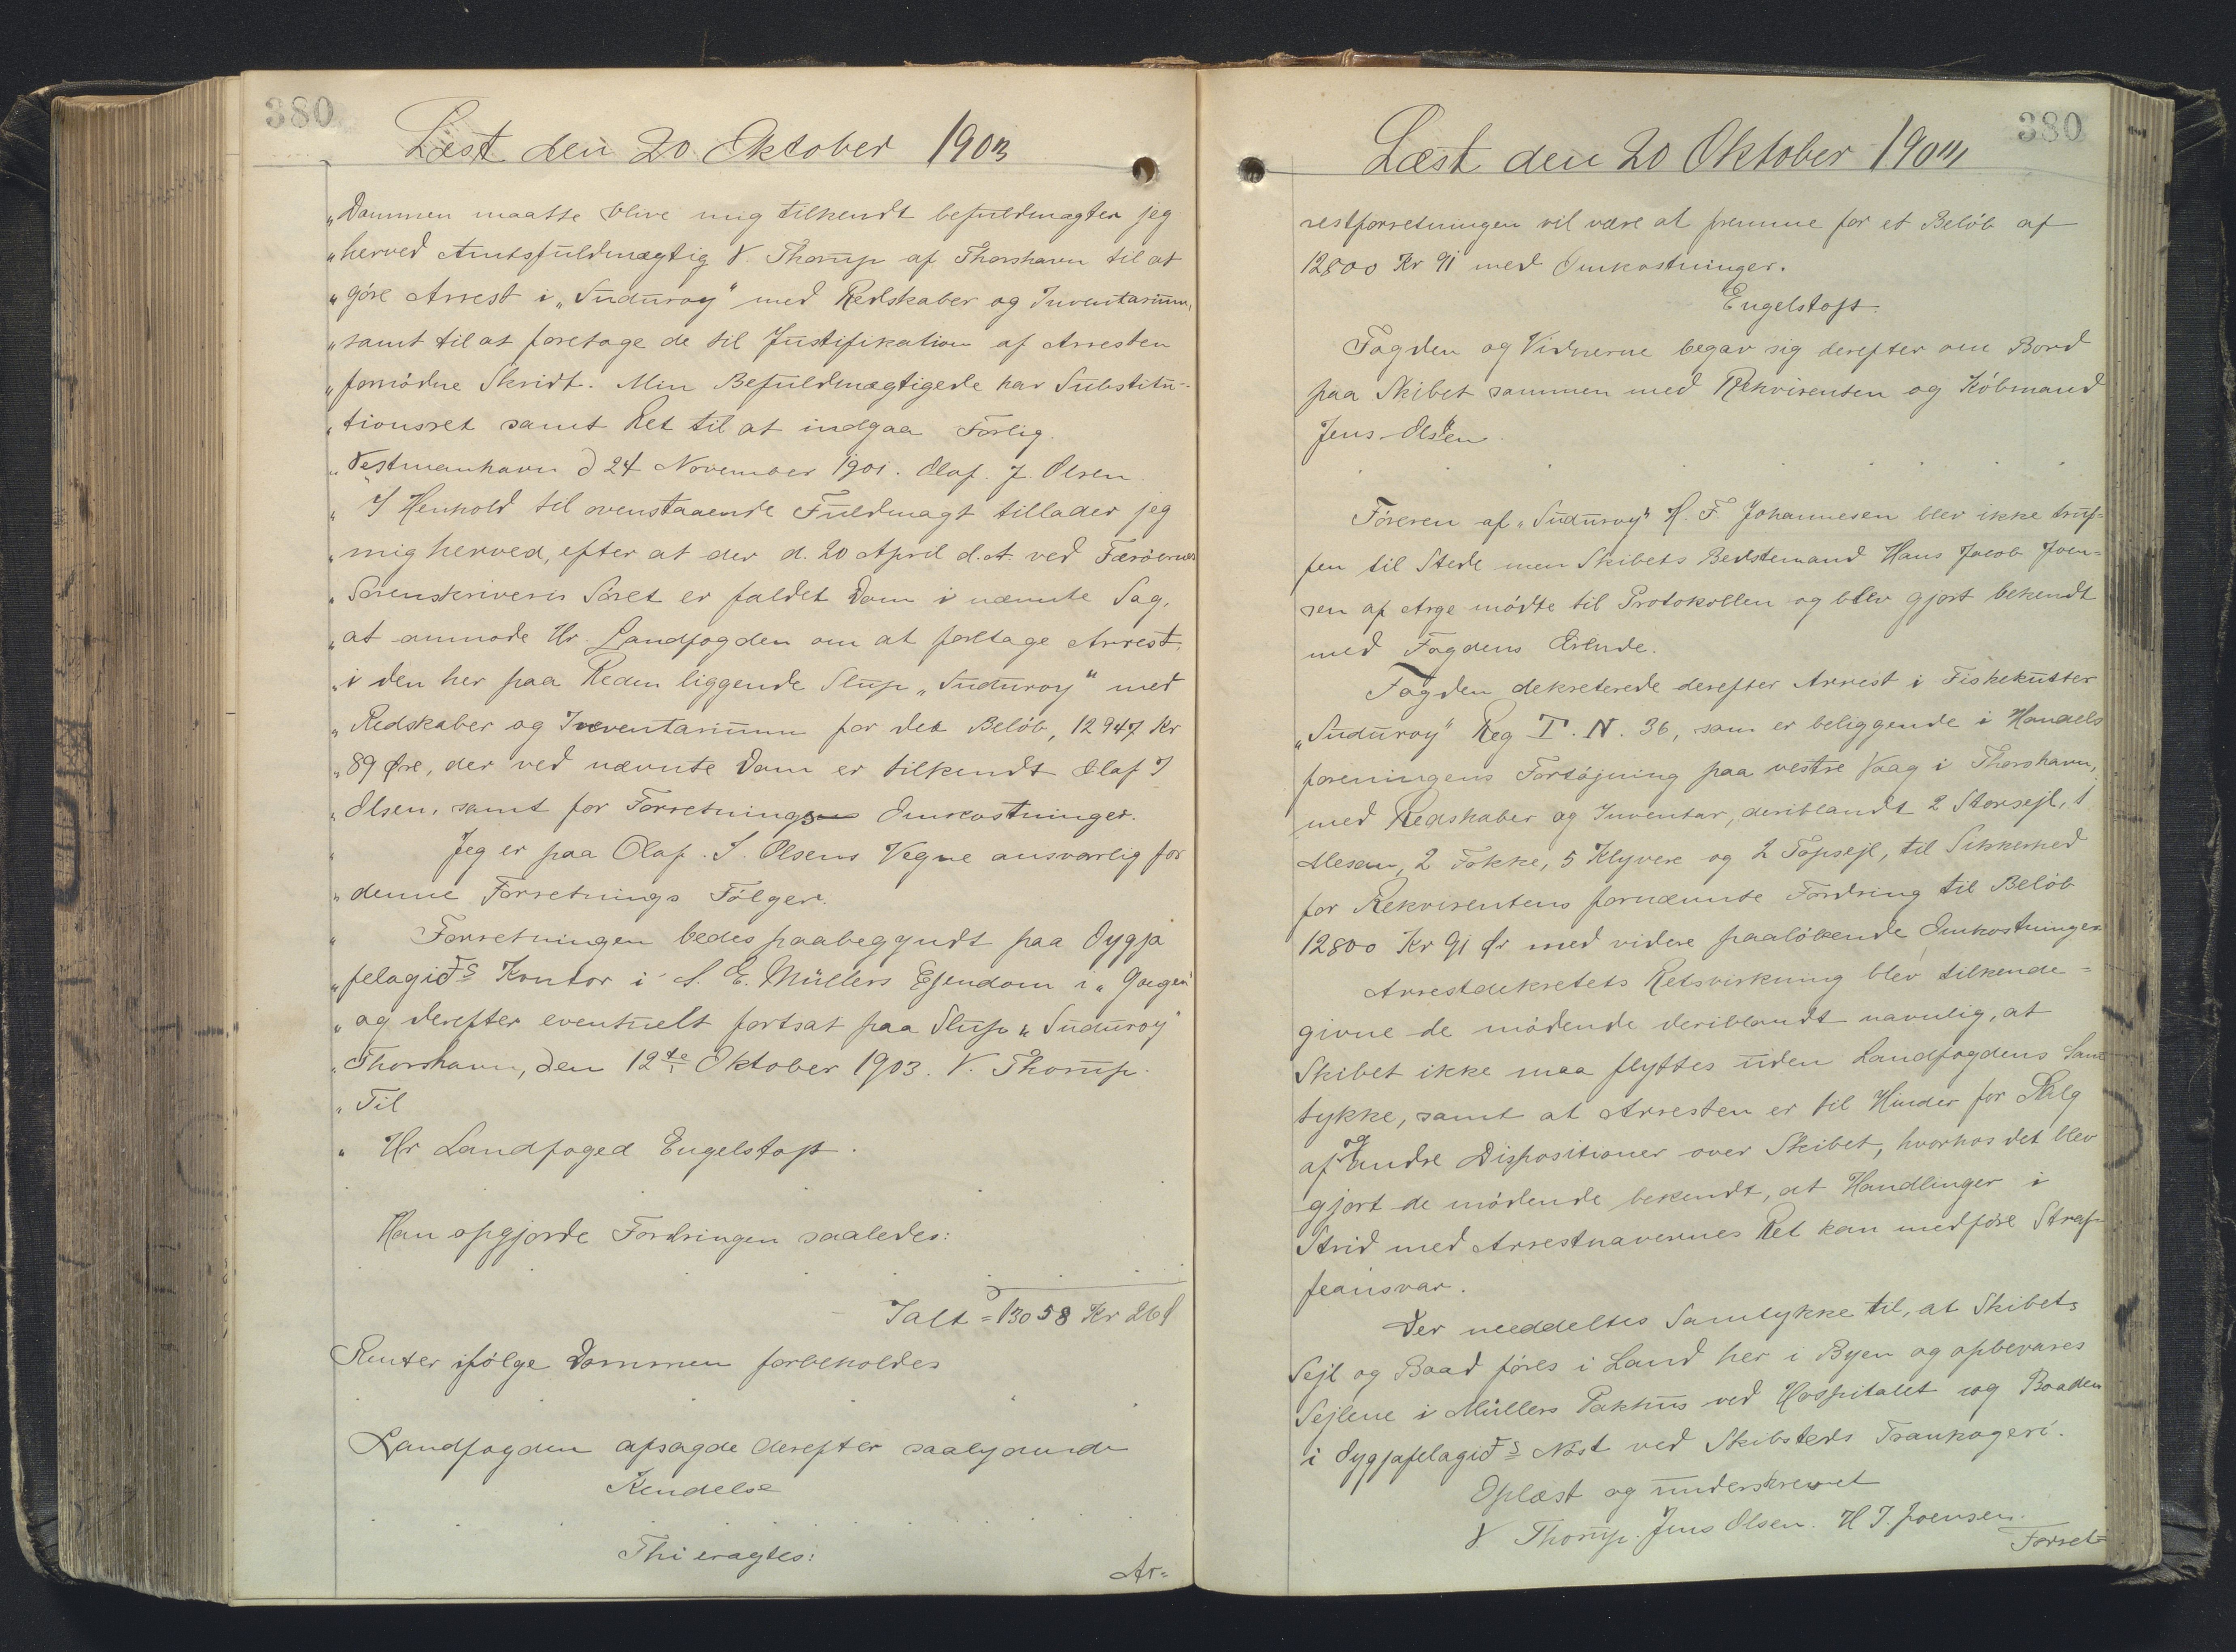 380
Læst den 20 Oktober 1903
„Dommen maatte blive mig tilkendt befuldmagter jeg
„herved Amtsfuldmægtig V. Thorup af Thorshavn til at
„göre Arrest i „Suduroy“ med Redskaber og Inventarium,
„samt til at foretage de til Justifikation af Arresten
„fornödne Skridt. Min Befuldmægtigede har Substitu-
„tionsret samt Ret til at indgaa Forlig.
„Vestmanhavn d 24 November 1901. Olaf. J. Olsen.
„ I Henhold til ovenstaaende Fuldmagt tillader jeg
„mig herved, efter at der d. 20 April d.A. ved Færöernes
„Sorenskriveris Ret er faldet Dom i nævnte Sag,
„at anmode Hr. Landfogden om at foretage Arrest
„i den her paa Reden liggende Slup „Suduroy“ med
„Redskaber og Inventarium for det Belöb, 12947 Kr
„89 Øre, der ved nævnte Dom er tilkendt Olaf J
„Olsen, samt for Forretnings Omkostninger.
„ Jeg er paa Olaf. J. Olsens Vegne ansvarlig for
„denne Forretnings Fölger.
„ Forretningen bedes paabegyndt paa Dygja
„felagids Kontor i S. E. Müllers Ejendom i „Gongen“
„og derefter eventuelt fortsat paa Slup „Suduroy“
„Thorshavn, den 12te Oktober 1903. V. Thorup.
„Til
„ Hr Landfoged Engelstoft.
Han opgjorde Fordringen saaledes:
Ialt = 13058 Kr 26
Renter ifölge Dommen forbeholdes
Landfogden afsagde derefter saalydende
Kendelse
Thi eragtes:
Ar=
380
Læst den 20 Oktober 1903
restforretningen vil være at fremme for et Belöb af
12800 Kr 91 med Omkostninger.
Engelstoft.
Fogden og Vidnerne begav sig derefter om Bord
paa Skibet sammen med Rekvirenten og Köbmand
Jens Olsen.
Föreren af „Suduroy“ H. F. Johannesen blev ikke truf-
fen til Stede men Skibets Bedstemand Hans Jacob Joen-
sen af Arge mödte til Protokollen og blev gjort bekendt
med Fogdens Ærinde.
Fogden dekreterede derefter Arrest i Fiskekutter
„Suduroy“ Reg T. N. 36, som er beliggende i Handels
foreningens Fortöjning paa vestre Vaag i Thorshavn,
med Redskaber og Inventar, deriblandt 2 Storsejl, 1
Mesan, 2 Fokke, 5 Klyvere og 2 Topsejl, til Sikkerhed
for Rekvirentens fornævnte Fordring til Belöb
12800 Kr 91 Ør med videre paalöbende Omkostninger
Arrestdekretets Retsvirkning blev tilkende=
givne de mödende deriblandt navnlig, at
Skibet ikke maa flyttes uden Landfogdens Sam
tykke, samt at Arresten er til Hinder for Salg
af og andre Dispositioner over Skibet, hvorhos det blev
gjort de mödende bekendt, at Handlinger i
Strid med Arresthavernes Ret kan medföre Straf-
feansvar.
Der meddeltes Samtykke til, at Skibets
Sejl og Baad föres i Land her i Byen og opbevares
Sejlene i Müllers Pakhus ved Hospitalet og Baaden
i Dygjafelagids Nöst ved Skibsteds Trankogeri.
Oplæst og underskrevet
V Thorup. Jens Olsen. H J. Joensen.
Forret=